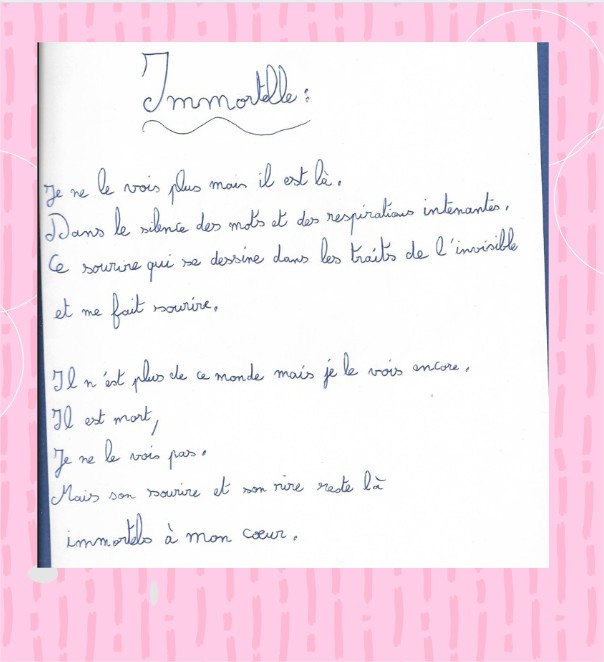 Immortelle :
Je ne le vois plus mais il est là.
Dans le silence des mots et des respirations intenantes.
Ce sourire qui se dessine dans les traits de l'invisible
et me fait sourire.
Il n'est plus de ce monde mais je le vois encore.
Il est mort,
Je ne le vois pas.
Mais son sourire et son rire reste là
immortels à mon cœur.